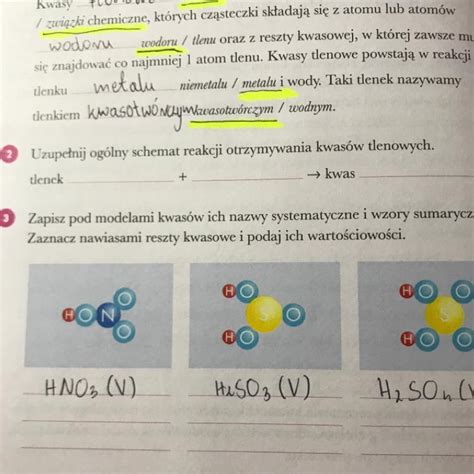 Kwasy
/ związki chemiczne, których cząsteczki składają się z atomu lub atomów
wodoru wodoru / tlenu oraz z reszty kwasowej, w której zawsze mu
się znajdować co najmniej 1 atom tlenu. Kwasy tlenowe powstają w reakcji
tlenku metalu niemetalu / metalu i wody. Taki tlenek nazywamy
tlenkiem kwasotwórczym kwasotwórczym / wodnym.
2 Uzupełnij ogólny schemat reakcji otrzymywania kwasów tlenowych.
tlenek + → kwas
3 Zapisz pod modelami kwasów ich nazwy systematyczne i wzory sumarycz
Zaznacz nawiasami reszty kwasowe i podaj ich wartościowości.
H O N O O
H O S O H O
H O S H O
HNO3 (V) H2SO3 (V) H2SO4 (V